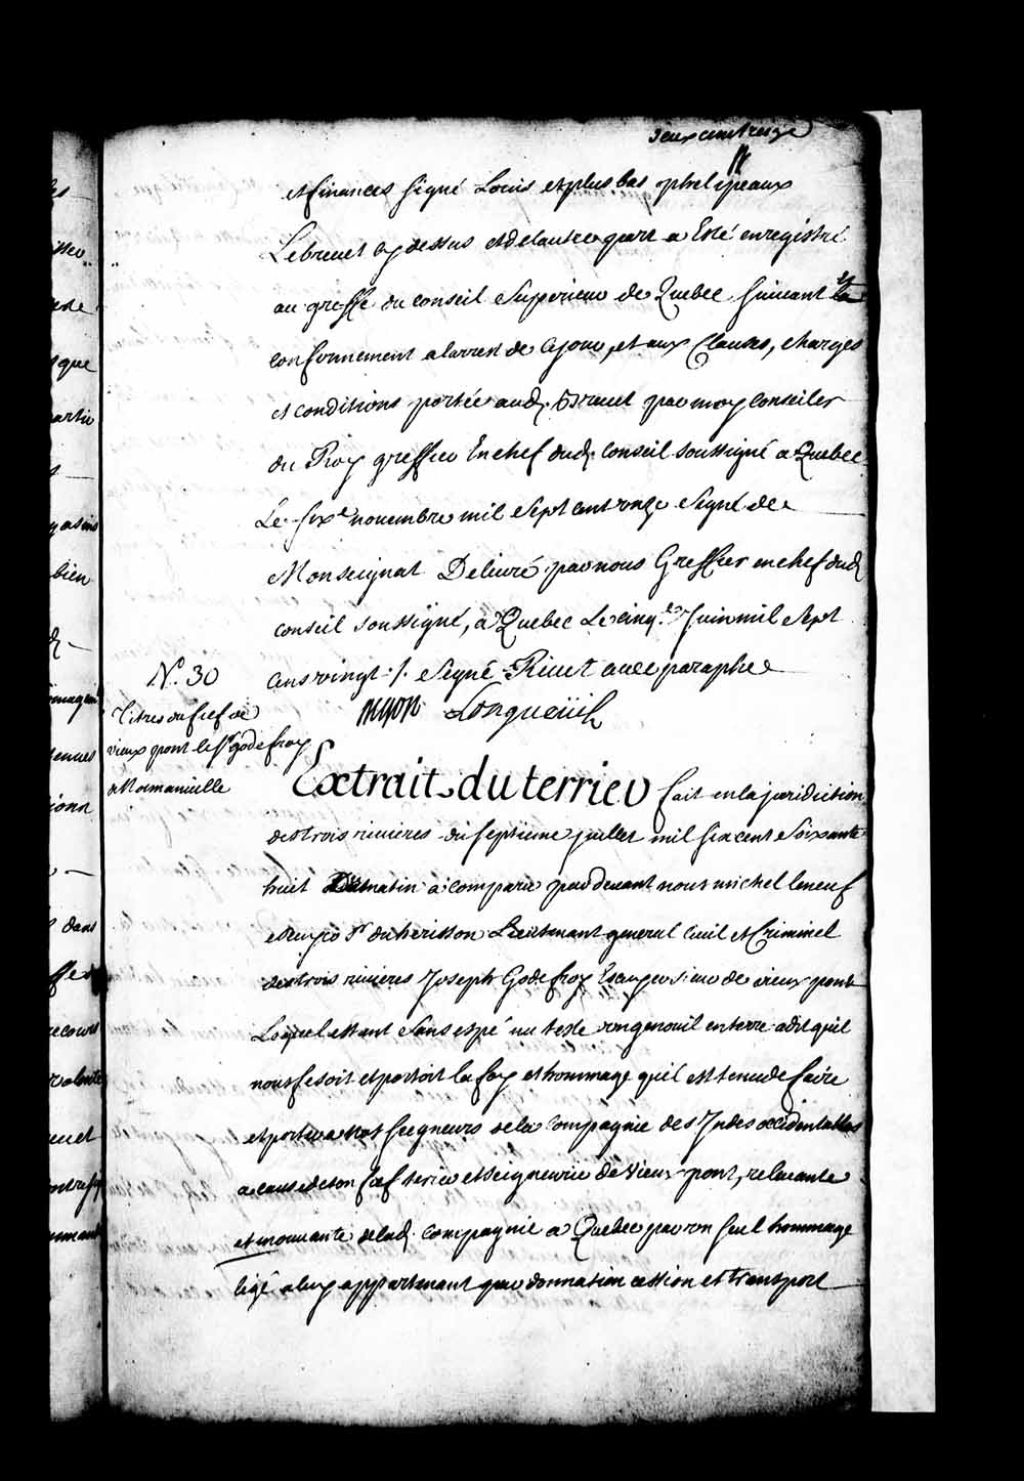 deux cent treize
et finances signé Louis et plus bas phelipeaux
Le brevet cy dessus et de lautre part a Esté enregistré
au greffe du conseil Superieur de Quebec suivant et
conformement a larrest de ce jour, et aux Clauses, charges
et conditions portée aud. Brevet par moy Conseiller
du Roy greffier En chef dud. Conseil soussigné a Quebec
Le six.e novembre mil Sept cent onze Signé de
Monseignat Delivré par nous Greffier en chef dud
conseil soussigné, a Quebec Le cinq.e Juin mil Sept
Cens vingt ./. Signé Rivet avec paraphe
Longueüil
N.º 30
Titres du fief de
vieux pont le Sr godefroy
de Normanville
Extrait du terrier fait en la juridiction
des trois rivieres du septieme juillet mil six cent Soixante
huit Du matin a comparu par devant nous michel leneuf
Escuyer Sr du herisson Lieutenant general Civil et Criminel
des trois rivieres Joseph Godefroy Escuyer Sieur de vieux pont
Lequel estant sans espé nu teste un genouil en terre a dit quil
nous fesoit et portoit la foy et hommage quil est tenu de faire
et porter a nos seigneurs de la Compagnie des Indes occidentalles
a cause de son fief terre et Seigneurie de Vieux pont, relevante
et mouvante de lad. Compagnie a Quebec par un seul hommage
lige a luy appartenant par donnation cession et transport
ligne
que
bien
dans
recours
volonte